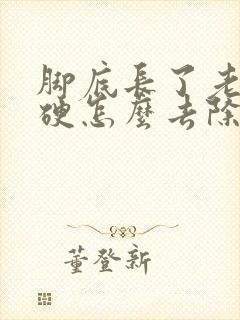 脚底長了老
硬怎麼去除
董登新